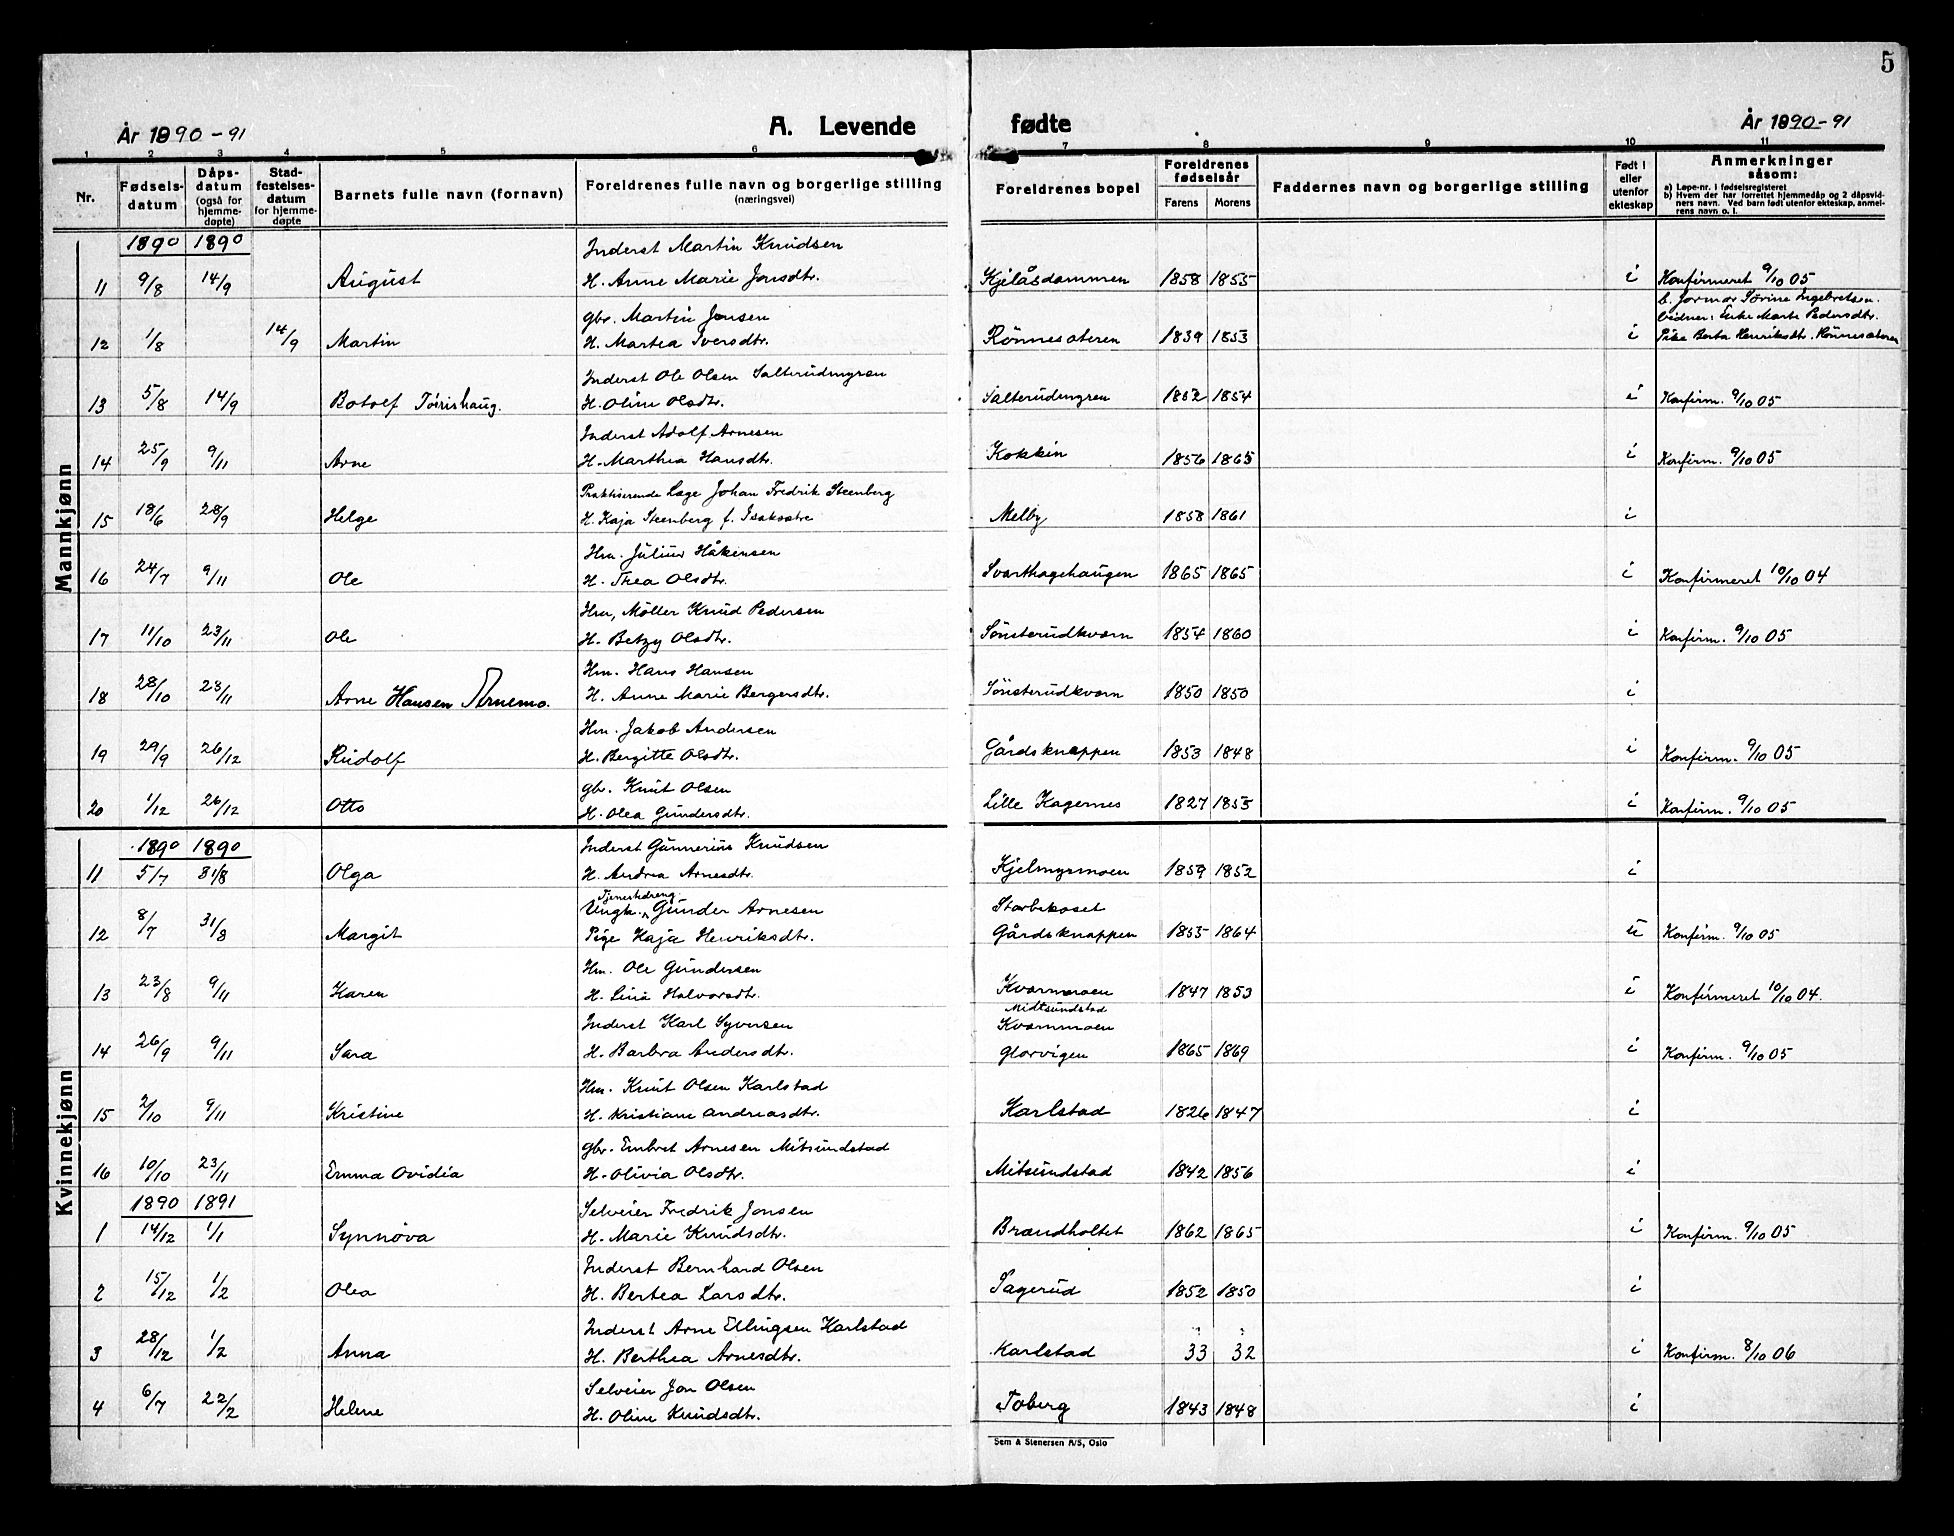 5
År 1890-91 A. Levende fødte År 1890-91
1 2 3 4 5 6 7 8 9 10 11
Nr. Fødselsdatum Dåpsdatum (også for hjemmedøpte) Stadfestelsesdatum for hjemmedøpte Barnets fulle navn (fornavn) Foreldrenes fulle navn og borgerlige stilling (næringsvei) Foreldrenes bopel Foreldrenes fødselsår Farens Morens Faddernes navn og borgerlige stilling Født i eller utenfor ekteskap Anmerkninger såsom: a) Løpe-nr. i fødselsregisteret b) Hvem der har forrettet hjemmedåp og 2 dåpsvidners navn. Ved barn født utenfor ekteskap, anmelerens navn o. l.
Mannkjønn
1890 1890 Inderst Martin Knudsen
11 9/8 14/9 August H. Anne Marie Jonsdtr. Kjelåsdammen 1858 1855 i Konfirmeret 9/10 05
gbr. Martin Jensen b. Jormor Sørine Ingebretsen.
vidner: Enke Marte Pedersdtr.
12 1/8 14/9 Martin H. Martea Iversdtr. Rönnesæteren 1839 1853 i Pike Berta Henriksdtr. Rönnesæteren
Inderst Ole Olsen Salterudmyren
13 5/8 14/9 Botolf Torishaug. H. Oline Olsdtr. Salterudmyren 1852 1854 i Konfirm. 9/10 05
Inderst Adolf Arnesen
14 25/9 9/11 Arne H. Marthea Hansdtr. Kokkin 1856 1865 i Konfirm. 9/10 05
Praktiserende Læge Johan Fredrik Steenberg
15 18/6 28/9 Helge H. Kaja Steenberg f. Isaksætre Melby 1858 1861 i
Hm. Julius Håkensen
16 24/7 9/11 Ole H. Thea Olsdtr. Svarthagehaugen 1865 1865 i Konfirmeret 10/10 04
Hm, Möller Knud Pedersen
17 11/10 23/11 Ole H. Betzy Olsdtr. Sönsterudkvern 1854 1860 i Konfirm. 9/10 05
Hm. Hans Hansen
18 28/10 23/11 Arne Hansen Arnemo. H. Anne Marie Bergersdtr. Sönsterudkværn 1850 1850 i
Hm. Jakob Andersen
19 29/9 26/12 Rudolf H. Bergitte Olsdtr. Gårdsknappen 1853 1848 i Konfirm. 9/10 05
gbr. Knut Olsen
20 1/12 26/12 Otto H. Olea Gundersdtr. Lille Kagernes 1827 1853 i Konfirm. 9/10 05
Kvinnekjønn
1890 1890 Inderst Gunnerius Knudsen
11 5/7 31/8 Olga H. Andrea Arnesdtr. Kjelmyrmoen 1859 1852 i
Tjenestdreng
Ungk. Gunder Arnesen Storbekaset
12 8/7 31/8 Margit Pige Kaja Henriksdtr. Gårdsknappen 1855 1864 u Konfirm. 9/10 05
Hm. Ole Gundersen
13 23/8 9/11 Karen H. Lina Halvorsdtr. Kværnmoen 1847 1853 i Konfirmeret 10/10 04.
Midtsundstad
Inderst Karl Syversen Kvernmoen
14 26/9 9/11 Sara H. Barbra Andersdtr. Glorvigen 1865 1869 i Konfirm. 9/10 05
Hm. Knut Olsen Karlstad
15 2/10 9/11 Kristine H. Kristiane Andreasdtr. Karlstad 1826 1847 i
gbr. Embret Arnesen Mitsundstad
16 10/10 23/11 Emma Ovidia H. Olivia Olsdtr. Mitsundstad 1842 1856 i
1890 1891 Selveier Fredrik Jonsen
1 14/12 1/1 Synnøva H. Marie Knudsdtr. Brandholtet 1862 1865 i Konfirm. 9/10 05
Inderst Bernhard Olsen
2 15/12 1/2 Olea H. Bertea Larsdtr. Sagerud 1852 1850 i
Inderst Arne Ellingsen Karlstad
3 28/12 1/2 Anna H. Berthea Arnesdtr. Karlstad 33 32 i Konfirm. 8/10 06
Selveier Jon Olsen
4 6/7 22/2 Helene H. Oline Knudsdtr. Toberg 1843 1848 i
Sem & Stenersen A/S, Oslo